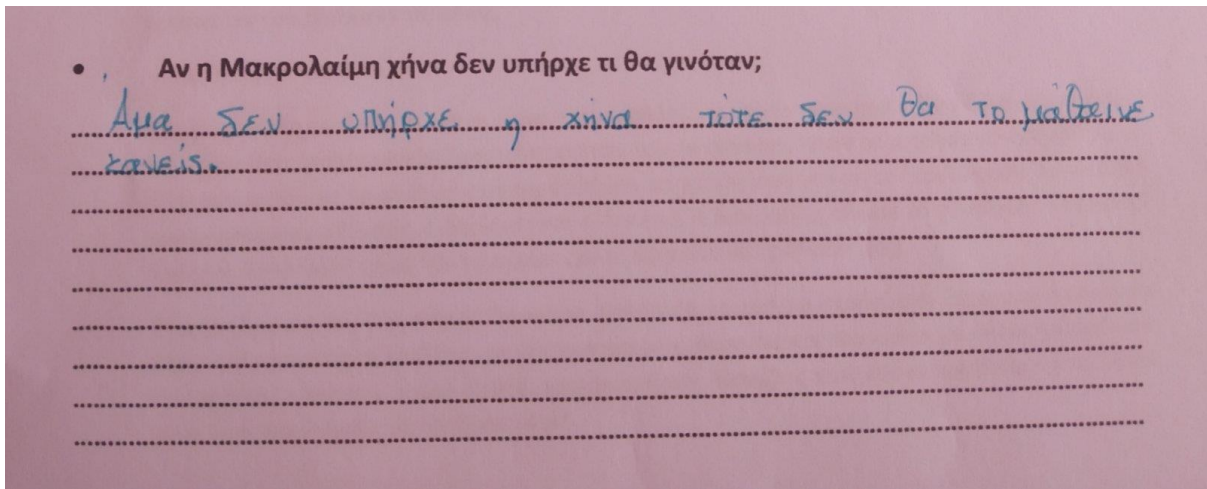 • Αν η Μακρολαίμη χήνα δεν υπήρχε τι θα γινόταν;
Αμα δεν υπήρχε η χήνα τότε δεν θα το μάθαινε
κανείς.